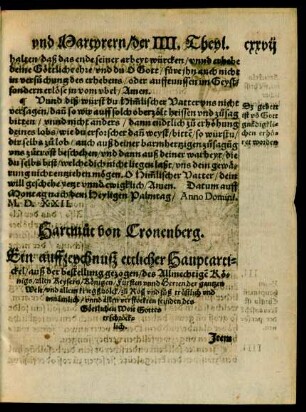 vnd Martyrern/der IIII. Theyl. cxxvij
halten/ daß das ende seiner arbeyt würcken/ vnnd erhebe
deine Göttliche ehre/ vnd du O Gott/ füre jhn auch nicht
in versuchung des erhebens/ oder auffreussen im Geyst/
sondern erlöse in vom vbel/ Amen.
¶ Vnnd diß würst du Himlischer Vatter vns nicht
versagen/ daß so wir auff solch
bitten/ vnnd nicht anders/ dann endtlich zu erhöhung
deines lobs/ wie du erforscher daß weyst/ bitten/ so würstu/
der selbs zů lob/ auch auß deiner barmhertzigen zusagung
vns zů trost beschehen/ vnd dann auß deiner warheyt/ die
du selbs bist/ welche dich nicht liegen laßt/
nicht entziehen mögen. O Himlischer Vatter/ dein
will geschehe yetz vnnd ewigklich/ Amen. Datum auff
Montag nach dem Heyligen Palmtag/ Anno Domini.
M. D. XXII.
Hartmůt von Cronenberg.
Ein auffzeychnuß ettlicher Hauptarti-
ckel/ auß der bestellung gezogen/ des Allmechtigē Kö-
nigs/ allen Keysern/ Königen/ Fürsten vnnd Herren der gantzen
Welt/ vnd allem kriegßuolck/ zů Roß vnd fůß tröstlich vnd
vnnd allen verstockten feynden des
Göttlichen Wort Gottes
erschröck-
lich.
Item